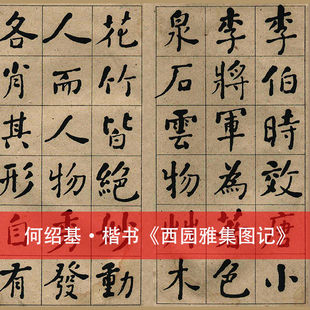 李伯時效唐小
李將軍為著色
泉石雲物艸木
花竹皆絕妙動
人而人物秀發
各肖其形自有
何绍基·楷书《西园雅集图记》